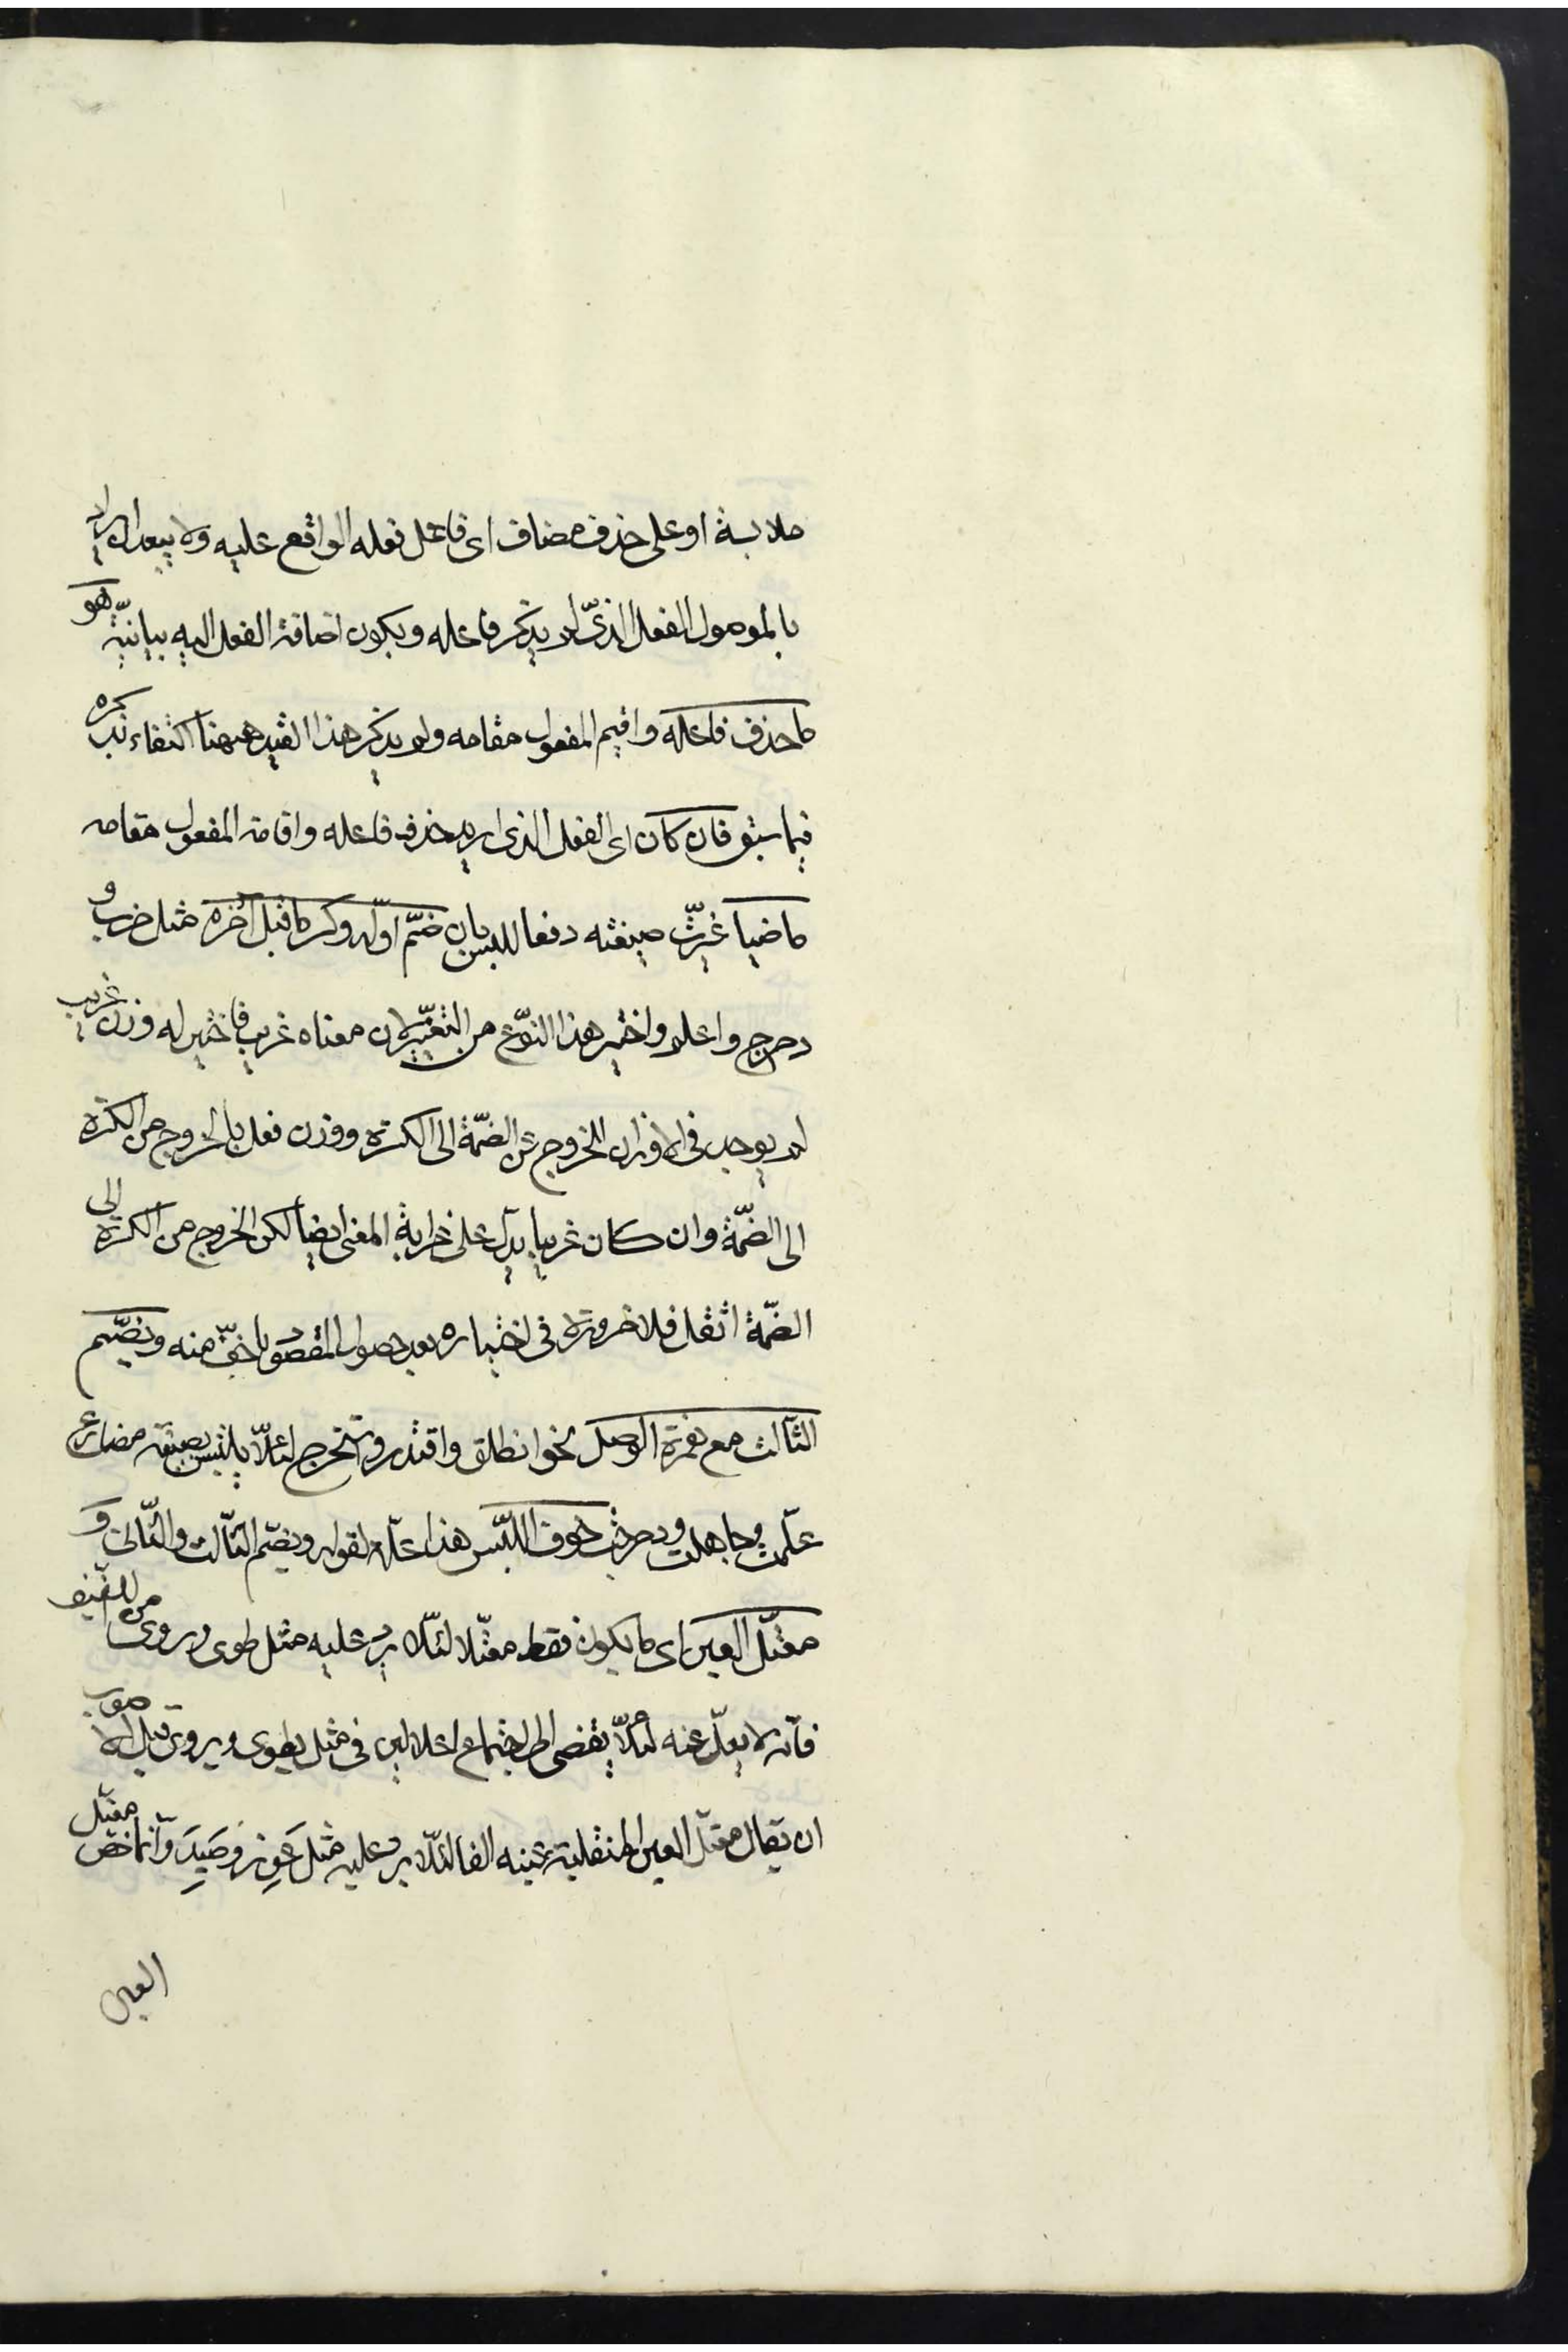 ملابسة او على حذف مضاف اى فاعل فعله الواقع عليه ولا يبعد ان يراد
بالموصول الفعل الذىّ لم يذكر فاعله ويكون اضافة الفعل اليه بيانيّة هو
ما حذف فاعله واقيم المفعول مقامه ولم يذكر هذا القيد ههنا اكتفاء بذكره
فيما سبق فان كان اى الفعل الذى اريد حذف فاعله واقامة المفعول مقامه
ماضيا غيّرت صيغته دفعا للبس بان ضمّ اوّله وكسر ما قبل آخره مثل ضرب و
دحرج واعلم واختير هذا النوّع من التغيّير لان معناه غريب فاختير له وزن غريب
لم يوجد فى الاوزان للخروج عن الضمّة الى الكسرة ووزن فعل بالخروج من الكسرة
الى الضمّة وان كان غريبا يدلّ على غرابة المعنى ايضا لكن الخروج من الكسرة الى
الضمّة اثقل فلا ضرورة فى اختياره بعد حصول المقصود باخفّ منه ويضّم
الثّالث مع همزة الوصل نحو انطلق واقتدر واستخرج لئلاّ يلتبس بصيغة مضارع
علّمت وجاهلت ودحرجت خوف اللبّس هذا علّة لقوله ويضّم الثّالث والثّانى و
معتّل العين اى ما يكون فقط معتّلا لئلّا يرد عليه مثل طوى وروى من اللفيف
فانّه لا يعلّ عينه لئلاّ يفضى الى اجتماع اعلالين فى مثل يطوى ويروى قيل الاصوب
ان يقال معتلّ العين المنقلبة عينه الفا لئلّا يرد عليه مثل عَوِرَ وصَيِدَ وانّما خصّ معتّل
العين